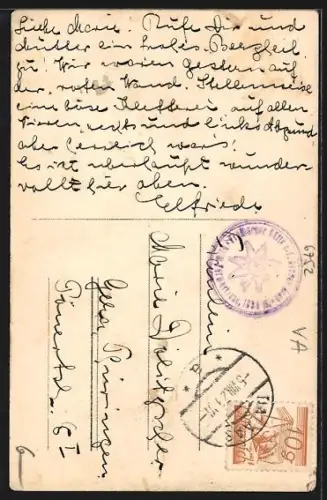 Liebe Marie. Rufe Dir und
Mutter ein frohes Bergheil
zu! Wir waren gestern auf
der roten Wand. Stellenweise
eine böse Kletterei auf allen
Vieren, rechts und links Abgrund
aber herrlich war's!
Es ist überhaupt wunder-
voll hier oben.
Elfriede
Fräulein
Marie
Gera Thüringen
6 I
6752
VA
10g
6